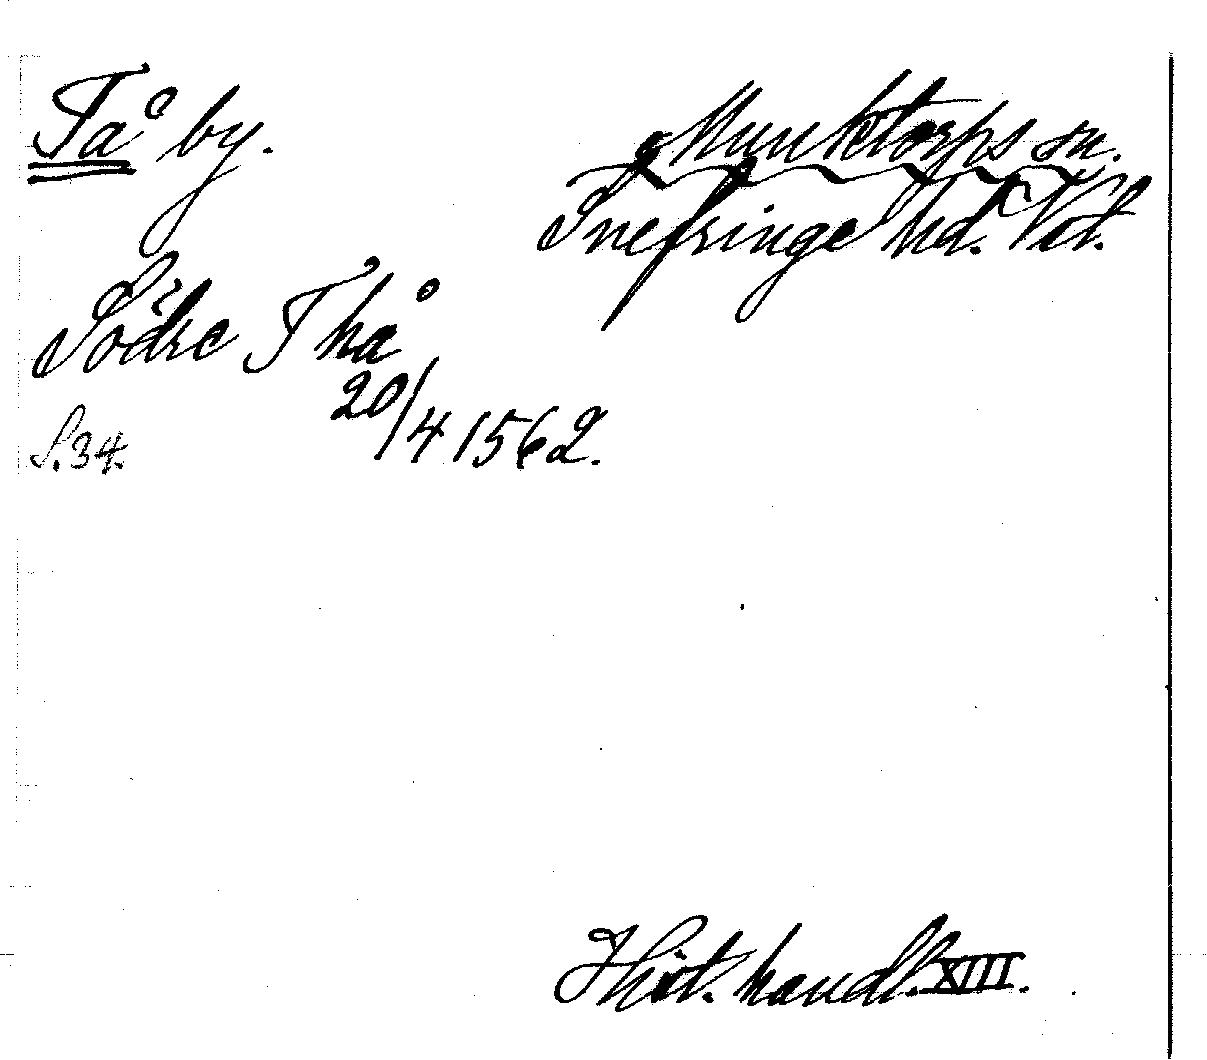 Tå by.
Munktorps sn.
Snefringe hd. Vstl.
Södre Thå
20/4 1562.
S.34.
Hist. handl. XIII.